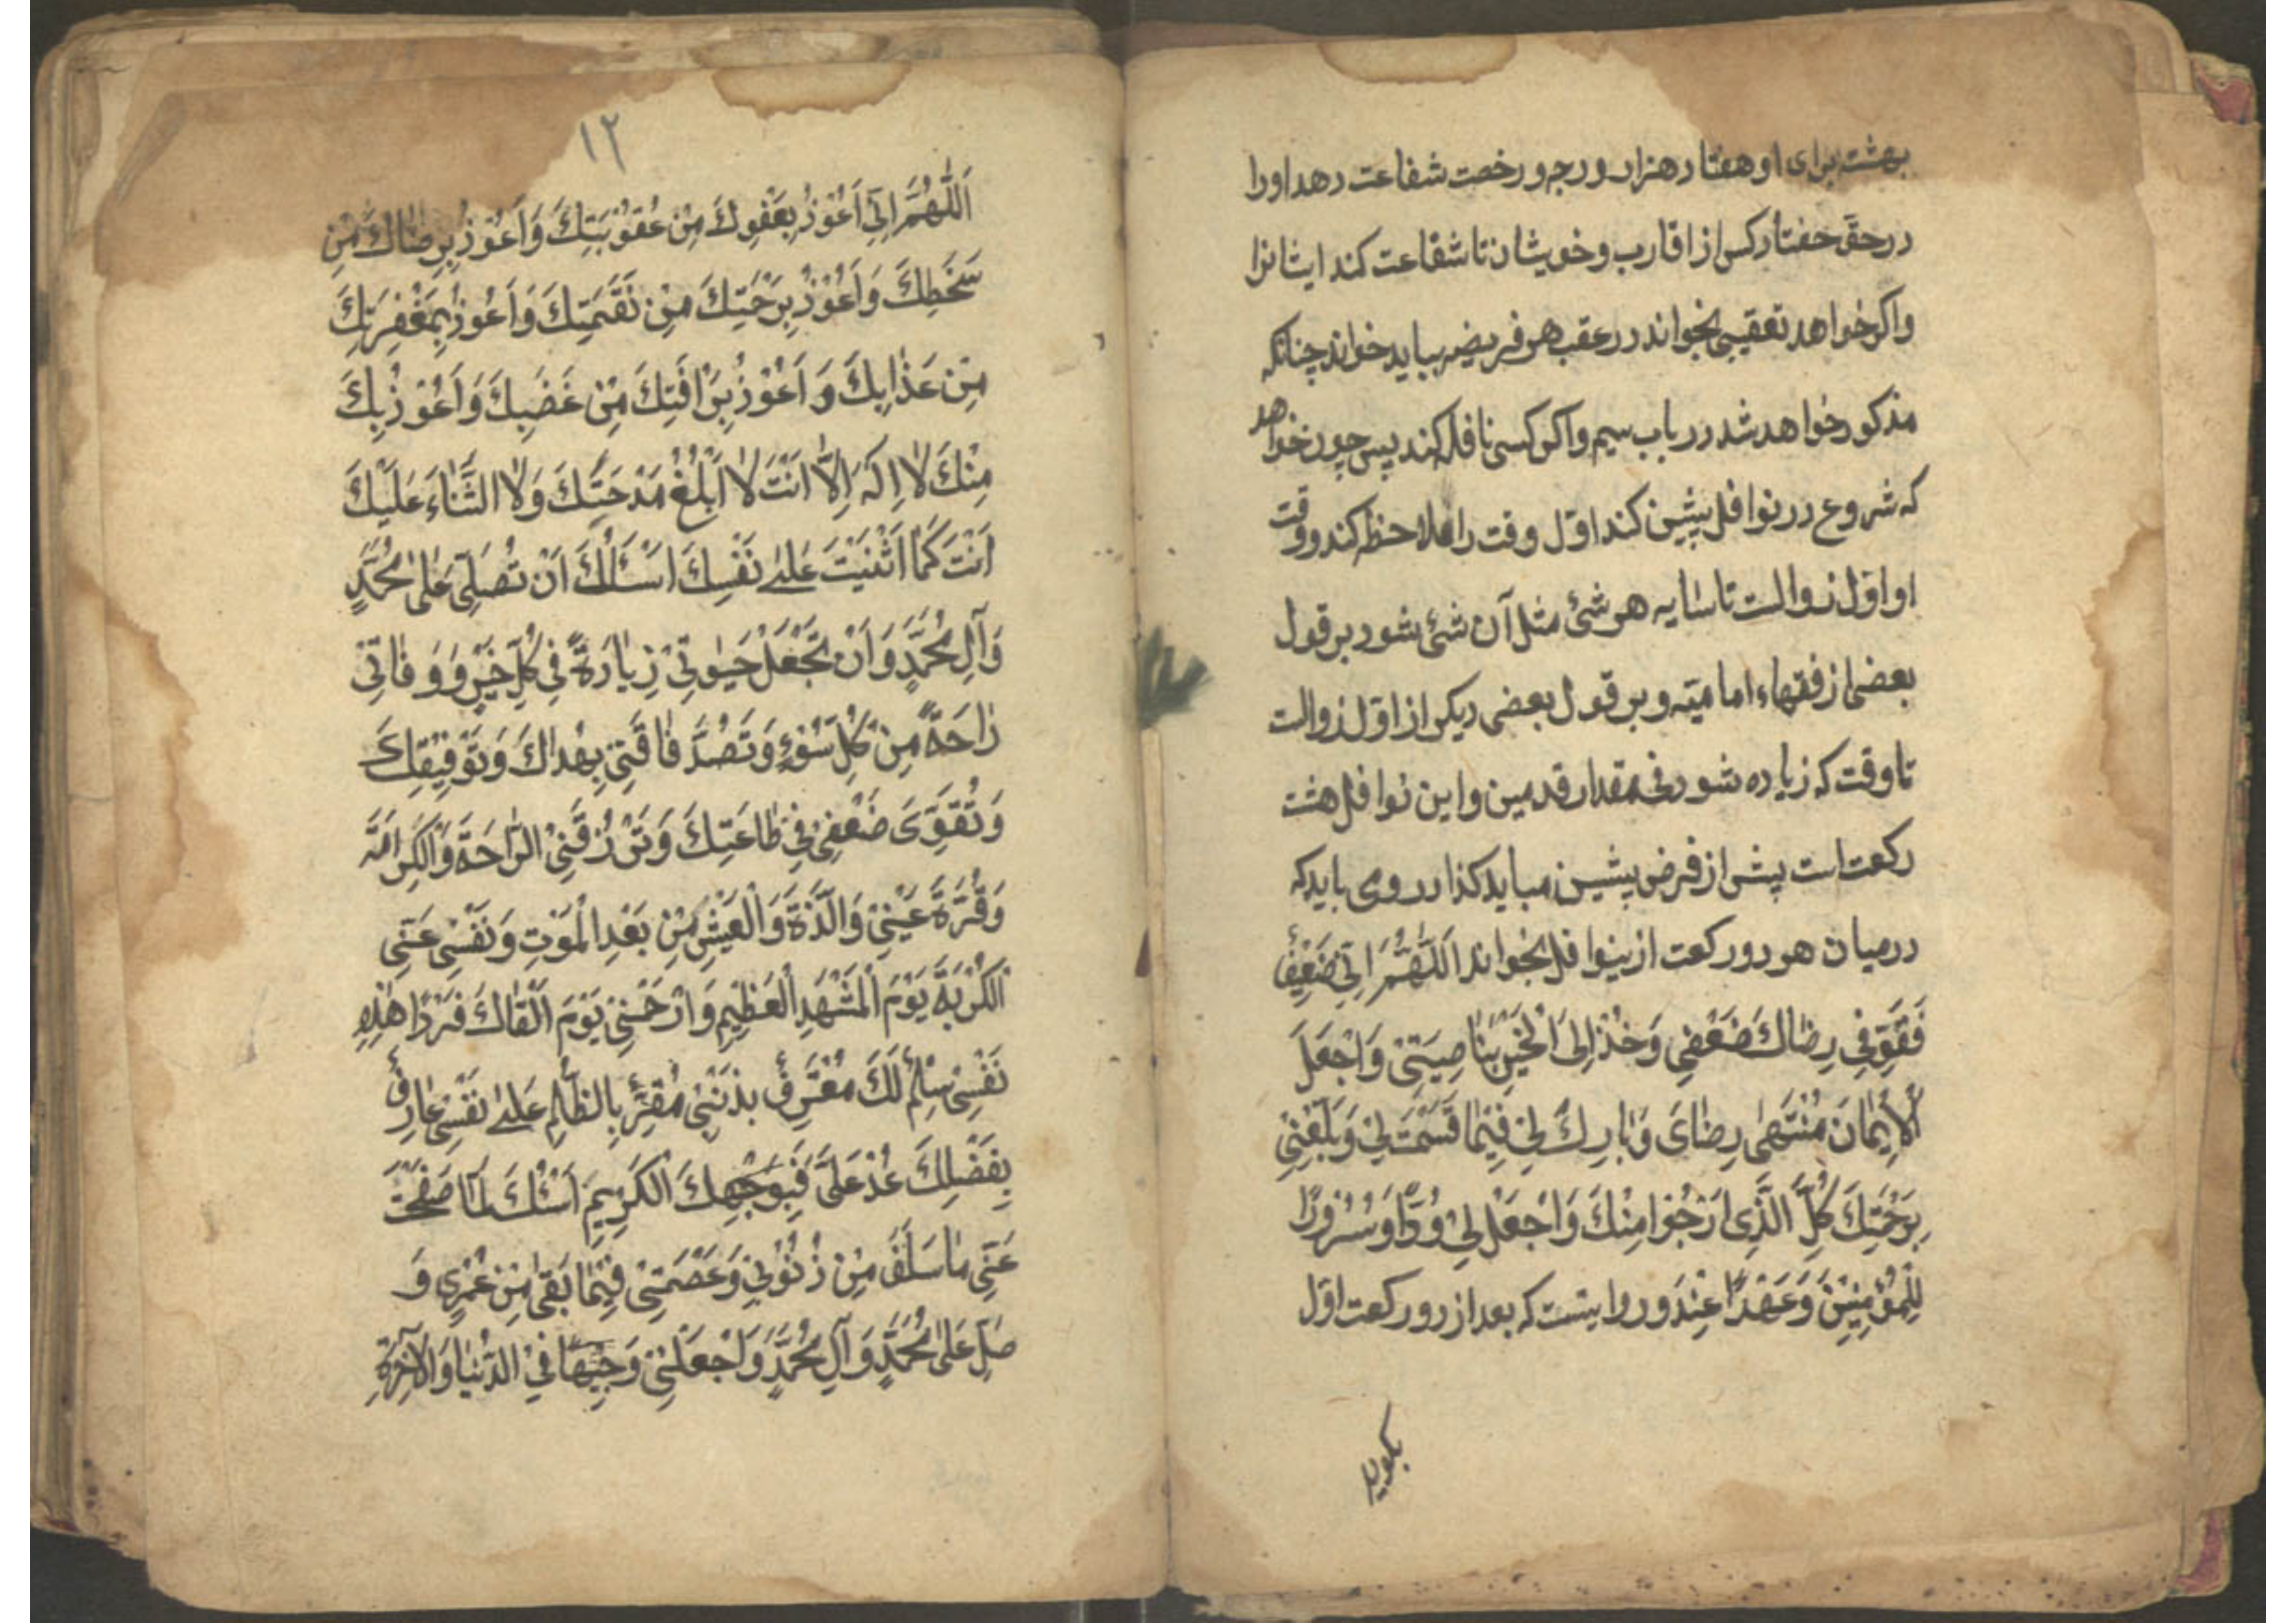 بهشت برای او هفتاد هزار درجه و رخصت شفاعت دهد او را
در حقّ هفتاد کس از اقارب و خویشان تا شفاعت کند ایشانرا
و اکر خواهد تعقیبی بخواند در عقب هر فریضه بباید خواند چنانکه
مذکور خواهد شد در باب سیم و اکر کسی نافله کند پس چون خواهد
که شروع در نوافل پیشین کند اوّل وقت را ملاحظه کند و وقت
او اوّل زوالست تا سایه هر شئ مثل آن شئ شود بر قول
بعضی از فقهاء امامیّه و بر قول بعضی دیکر از اوّل زوالست
تا وقت که زیاده شود فی مقدار قدمین و این نوافل هشت
رکعت است پیش از فرض پیشین میباید کذارد و می باید که
در میان هر دو رکعت از ینوافل بخواند اَللّٰهُمَّ اِنّی ضَعِیْفٌ
فَقَوِّ فِی رِضَاكَ ضَعْفِی وَخُذْ اِلَی الْخَیْرِ بِنَاصِیَتِیْ وَاجْعَلْ
الْاِیْمَانَ مُنْتَهٰی رِضَایَ وَبَارِكْ لِیْ فِیْمَا قَسَمْتَ لِیْ وَبَلِّغْنِیْ
بِرَحْمَتِكَ كُلَّ الَّذِی اَرْجُوْا مِنْكَ وَاجْعَلْ لِیْ وُدًّا وَسُرُوْرًا
لِلْمُؤْمِنِیْنَ وَعَهْدًا عِنْدَ و روایتست که بعد از دو رکعت اوّل
بکوید
١٢
اَللّٰهُمَّ اِنِّیْ اَعُوْذُ بِعَفْوِكَ مِنْ عُقُوْبَتِكَ وَاَعُوْذُ بِرِضَاكَ مِنْ
سَخَطِكَ وَاَعُوْذُ بِرَحْمَتِكَ مِنْ نَقَمَتِكَ وَاَعُوْذُ بِمَغْفِرَتِكَ
مِنْ عَذَابِكَ وَ اَعُوْذُ بِرَافَتِكَ مِنْ غَضَبِكَ وَاَعُوْذُ بِكَ
مِنْكَ لَا اِلٰهَ اِلَّا اَنْتَ لَا اَبْلُغُ مَدْحَتَكَ وَلَا الثَّنَاءَ عَلَیْكَ
اَنْتَ كَمَا اَثْنَیْتَ عَلیٰ نَفْسِكَ اَسْئَلُكَ اَنْ تُصَلِّیَ عَلٰی مُحَمَّدٍ
وَآلِ مُحَمَّدٍ وَاَنْ تَجْعَلْ حَیٰوتِیْ زِیَادَةً فِیْ كُلِّ خَیْرٍ وَ وَفَاتِیْ
رَاحَةً مِنْ كُلِّ سُوْءٍ وَتَصُدَّ فَاقَتِیْ بِهُدَاكَ وَتَوْفِیْقِكَ
وَتُقَوِّیَ ضَعْفِیْ فِیْ طَاعَتِكَ وَتَرْزُقَنِیْ الرَّاحَةَ وَالْكَرَامَةَ
وَقُرَّةَ عَیْنِیْ وَالَّذَةَ وَالْعَیْشِ مِنْ بَعْدِ الْمَوْتِ وَنَفِّسْ عَنِّی
الْكُرْبَةَ یَوْمَ الْمَشْهَدِ الْعَظِیْمِ وَارْحَمْنِیْ یَوْمَ اَلْقَاكَ فَرْدًا هٰذِهِ
نَفْسِیْ سِلْمٌ لَكَ مُعْتَرِفٌ بِذَنْبِیْ مُقِرٌّ بِالظُّلْمِ عَلیٰ نَفْسِیْ عَارِفٌ
بِفَضْلِكَ عُدْ عَلَیَّ فَبِوَجْهِكَ الْكَرِیْمِ اَسْئَلُكَ لَمَّا صَفَحْتَ
عَنِّی مَا سَلَفَ مِنْ ذُنُوْبِیْ وَعَصَمْتَنِیْ فِیْمَا بَقیٰ مِنْ عُمْرِی وَ
صَلِّ عَلٰی مُحَمَّدٍ وَآلِ مُحَمَّدٍ وَاجْعَلْنِیْ وَجِیْهًا فِیْ الدُّنْیَا وَالْآخِرَةِ